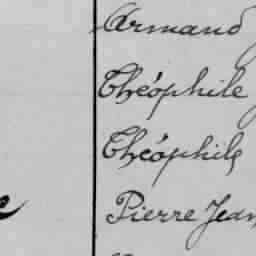 Armand
Théophile
Théophile
Pierre Jean